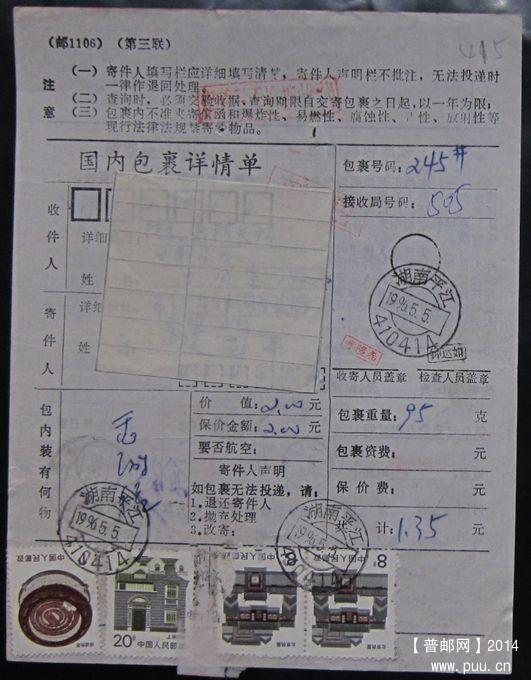 （邮1106）（第三联）
注意
（一）寄件人填写栏应详细填写清楚，寄件人声明栏不批注，无法投递时
一律作退回处理。
（二）查询时，必须交验收据，查询期限自交寄包裹之日起，以一年为限；
（三）包裹内不准夹寄信函和爆炸性、易燃性、腐蚀性、毒性、放射性等
现行法律法规禁寄物品。
国内包裹详情单
包裹号码：245#
接收局号码：505
收件人
详细
姓
寄件人
详细
姓
湖南平江
1996.5.5
410414
收寄人员盖章
检查人员盖章
包内装有何物
价 值：2.00元
保价金额：2.00元
要否航空：
寄件人声明
如包裹无法投递，请：
1.退还寄件人
2.抛弃处理
3.改寄：
包裹重量：95克
包裹资费： 元
保 价 费： 元
共 计：1.35元
湖南平江
1996.5.5
410414
湖南平江
410414
中国人民邮政
20分
中国人民邮政
上海民居
中国人民邮政
8分
北京民居
中国人民邮政
8分
北京民居
【普邮网】2014
www.puu.cn